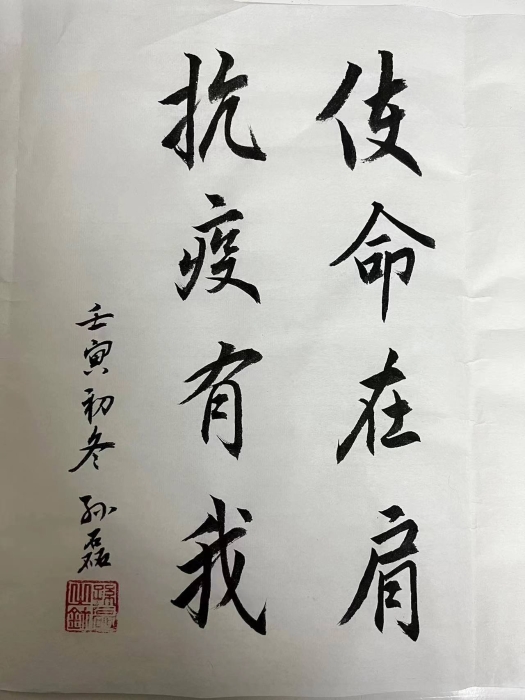 使命在肩
抗疫有我
壬寅初冬 孙磊